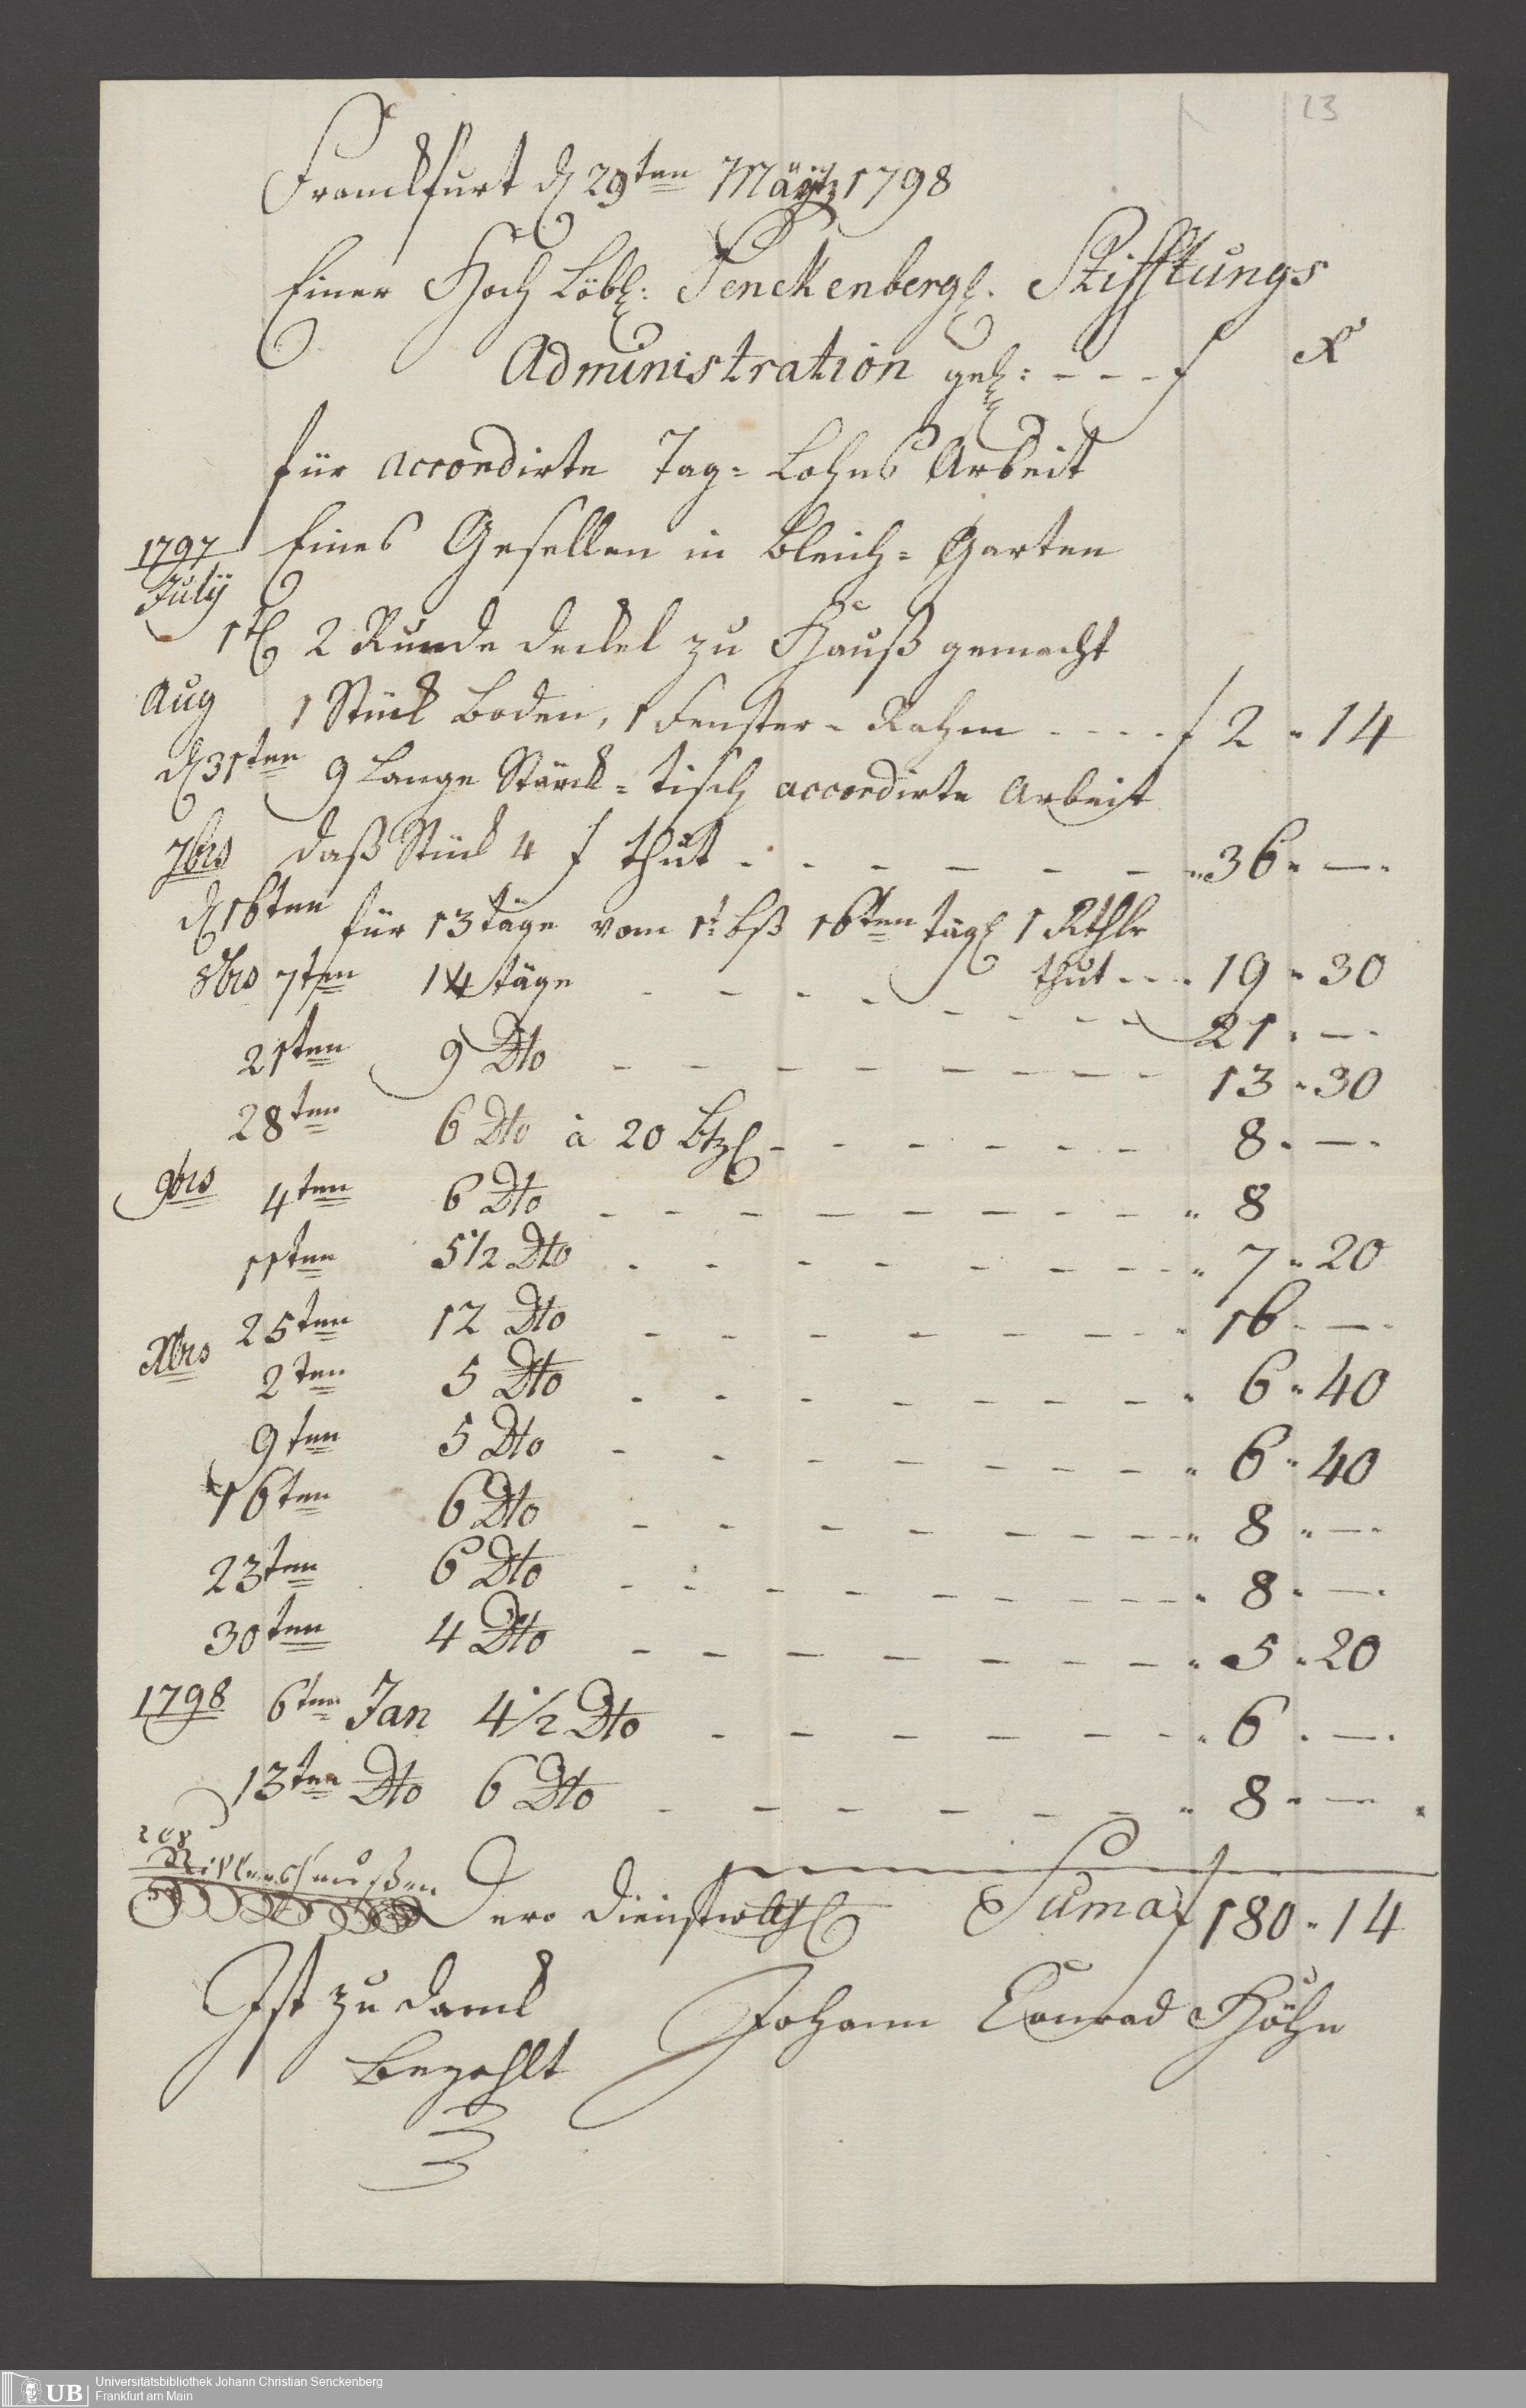 23
Franckfurt d 29ten Märtz 1798
Einer Hoch Löbl: Senckenbergl. Stifftungs
Administration geh: - - - f x
für accordirte Tag= Lohns Arbeit
1797 Eines Gesellen in Bleich= Garten
July
1t 2 Runde deckel zu Hauß gemacht
Aug 1 Stück Boden, 1 Fenster= Rahm - - - - f 2 " 14
d 31ten 9 Lange Stärck= tisch accordirte Arbeit
7brs daß Stück 4 f thut - - - - - - " 36 " —
d 16ten für 13 täge vom 1t biß 16ten tägl 1 Rthlr
thut - - - 19 " 30
8brs 7ten 14 täge - - - - - - - 21 " —
21ten 9 Dto - - - - - - - - 13 " 30
28ten 6 Dto à 20 btz - - - - - - 8 " —
9brs 4ten 6 Dto - - - - - - - - " 8
11ten 5 1/2 Dto - - - - - - - - " 7 " 20
25ten 12 Dto - - - - - - - " 16 " —
Xbrs 2ten 5 Dto - - - - - - - " 6 " 40
9ten 5 Dto - - - - - - - - " 6 " 40
16ten 6 Dto - - - - - - - " 8 " —
23ten 6 Dto - - - - - - - - " 8 " —
30ten 4 Dto - - - - - - - " 5 " 20
1798 6ten Jan 4 1/2 Dto - - - - - - - " 6 " —
13ten Dto 6 Dto - - - - - - - " 8 " —
208
Dero dienstw Suma f 180 " 14
Ist zu danck Johann Conrad Höhn
Bezahlt
UB Universitätsbibliothek Johann Christian Senckenberg
Frankfurt am Main